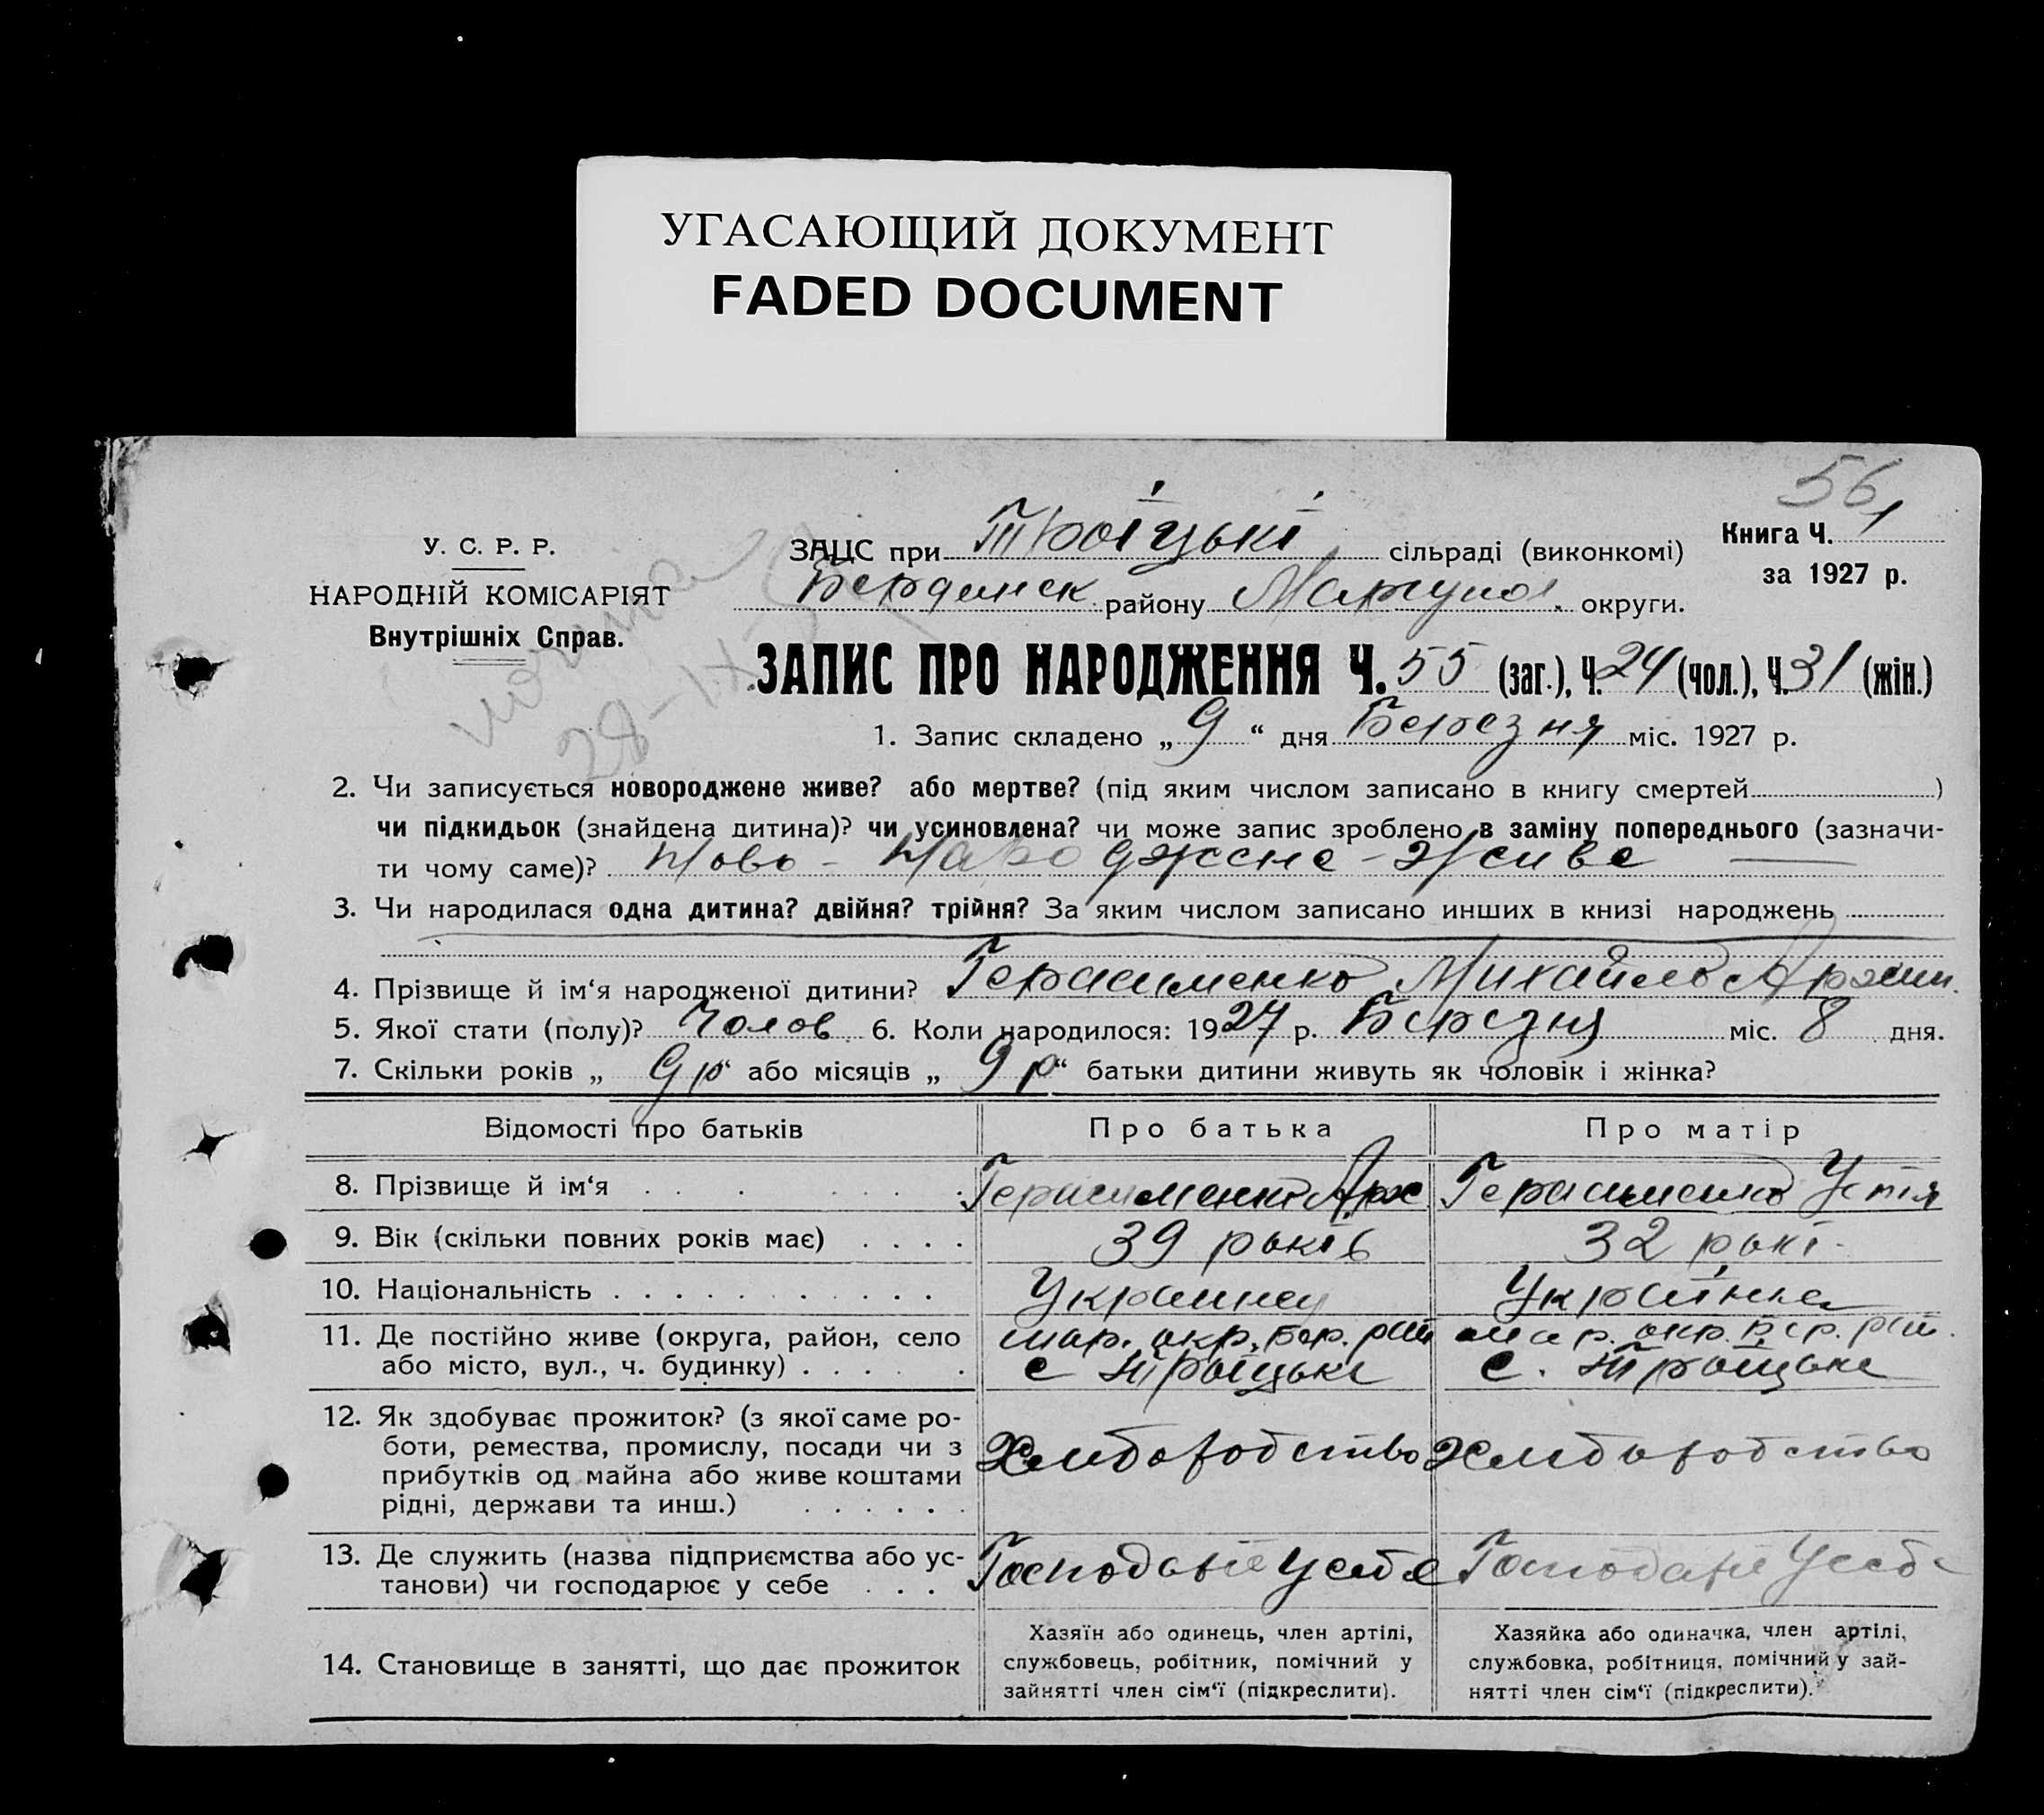 УГАСАЮЩИЙ ДОКУМЕНТ
FADED DOCUMENT
56
У. С. Р. Р.
НАРОДНІЙ КОМІСАРІЯТ
Внутрішніх Справ.
ЗАЦС при Троїцькі сільраді (виконкомі)
Бердянск району Маріупол. округи.
Книга Ч. 1
за 1927 р.
28-IX-
ЗАПИС ПРО НАРОДЖЕННЯ Ч. 55 (заг.), Ч. 24 (чол.), Ч. 31 (жін.)
1. Запис складено „ 9 “ дня Березня міс. 1927 р.
2. Чи записується новороджене живе? або мертве? (під яким числом записано в книгу смертей )
чи підкидьок (знайдена дитина)? чи усиновлена? чи може запис зроблено в заміну попереднього (зазначи-
ти чому саме)? Ново - Народжене - Живе —
3. Чи народилася одна дитина? двійня? трійня? За яким числом записано инших в книзі народжень
4. Прізвище й ім‘я народженої дитини? Герасименко Михайло
5. Якої стати (полу)? Чолов. 6. Коли народилося: 1927 р. Березня міс. 8 дня.
7. Скільки років „ 9 р “ або місяців „ 9 р “ батьки дитини живуть як чоловік і жінка?
Відомості про батьків Про батька Про матір
8. Прізвище й ім‘я Герасименко Арх Герасименко Устія
9. Вік (скільки повних років має) 39 років 32 рокі
10. Національність Украинец Українка
11. Де постійно живе (округа, район, село мар. окр. Бер. рай мар. окр. Бер. рай.
або місто, вул., ч. будинку) с Троїцьке с. Троїцьке
12. Як здобуває прожиток? (з якої саме ро-
боти, ремества, промислу, посади чи з Хлиборобство Хлиборобство
прибутків од майна або живе коштами
рідні, держави та инш.)
13. Де служить (назва підприємства або ус- Господарює у себе Господарює у себе
танови) чи господарює у себе
14. Становище в занятті, що дає прожиток
Хазяїн або одинець, член артілі,
службовець, робітник, помічний у
зайнятті член сім‘ї (підкреслити).
Хазяйка або одиначка, член артілі,
службовка, робітниця, помічний у зай-
нятті член сім‘ї (підкреслити).